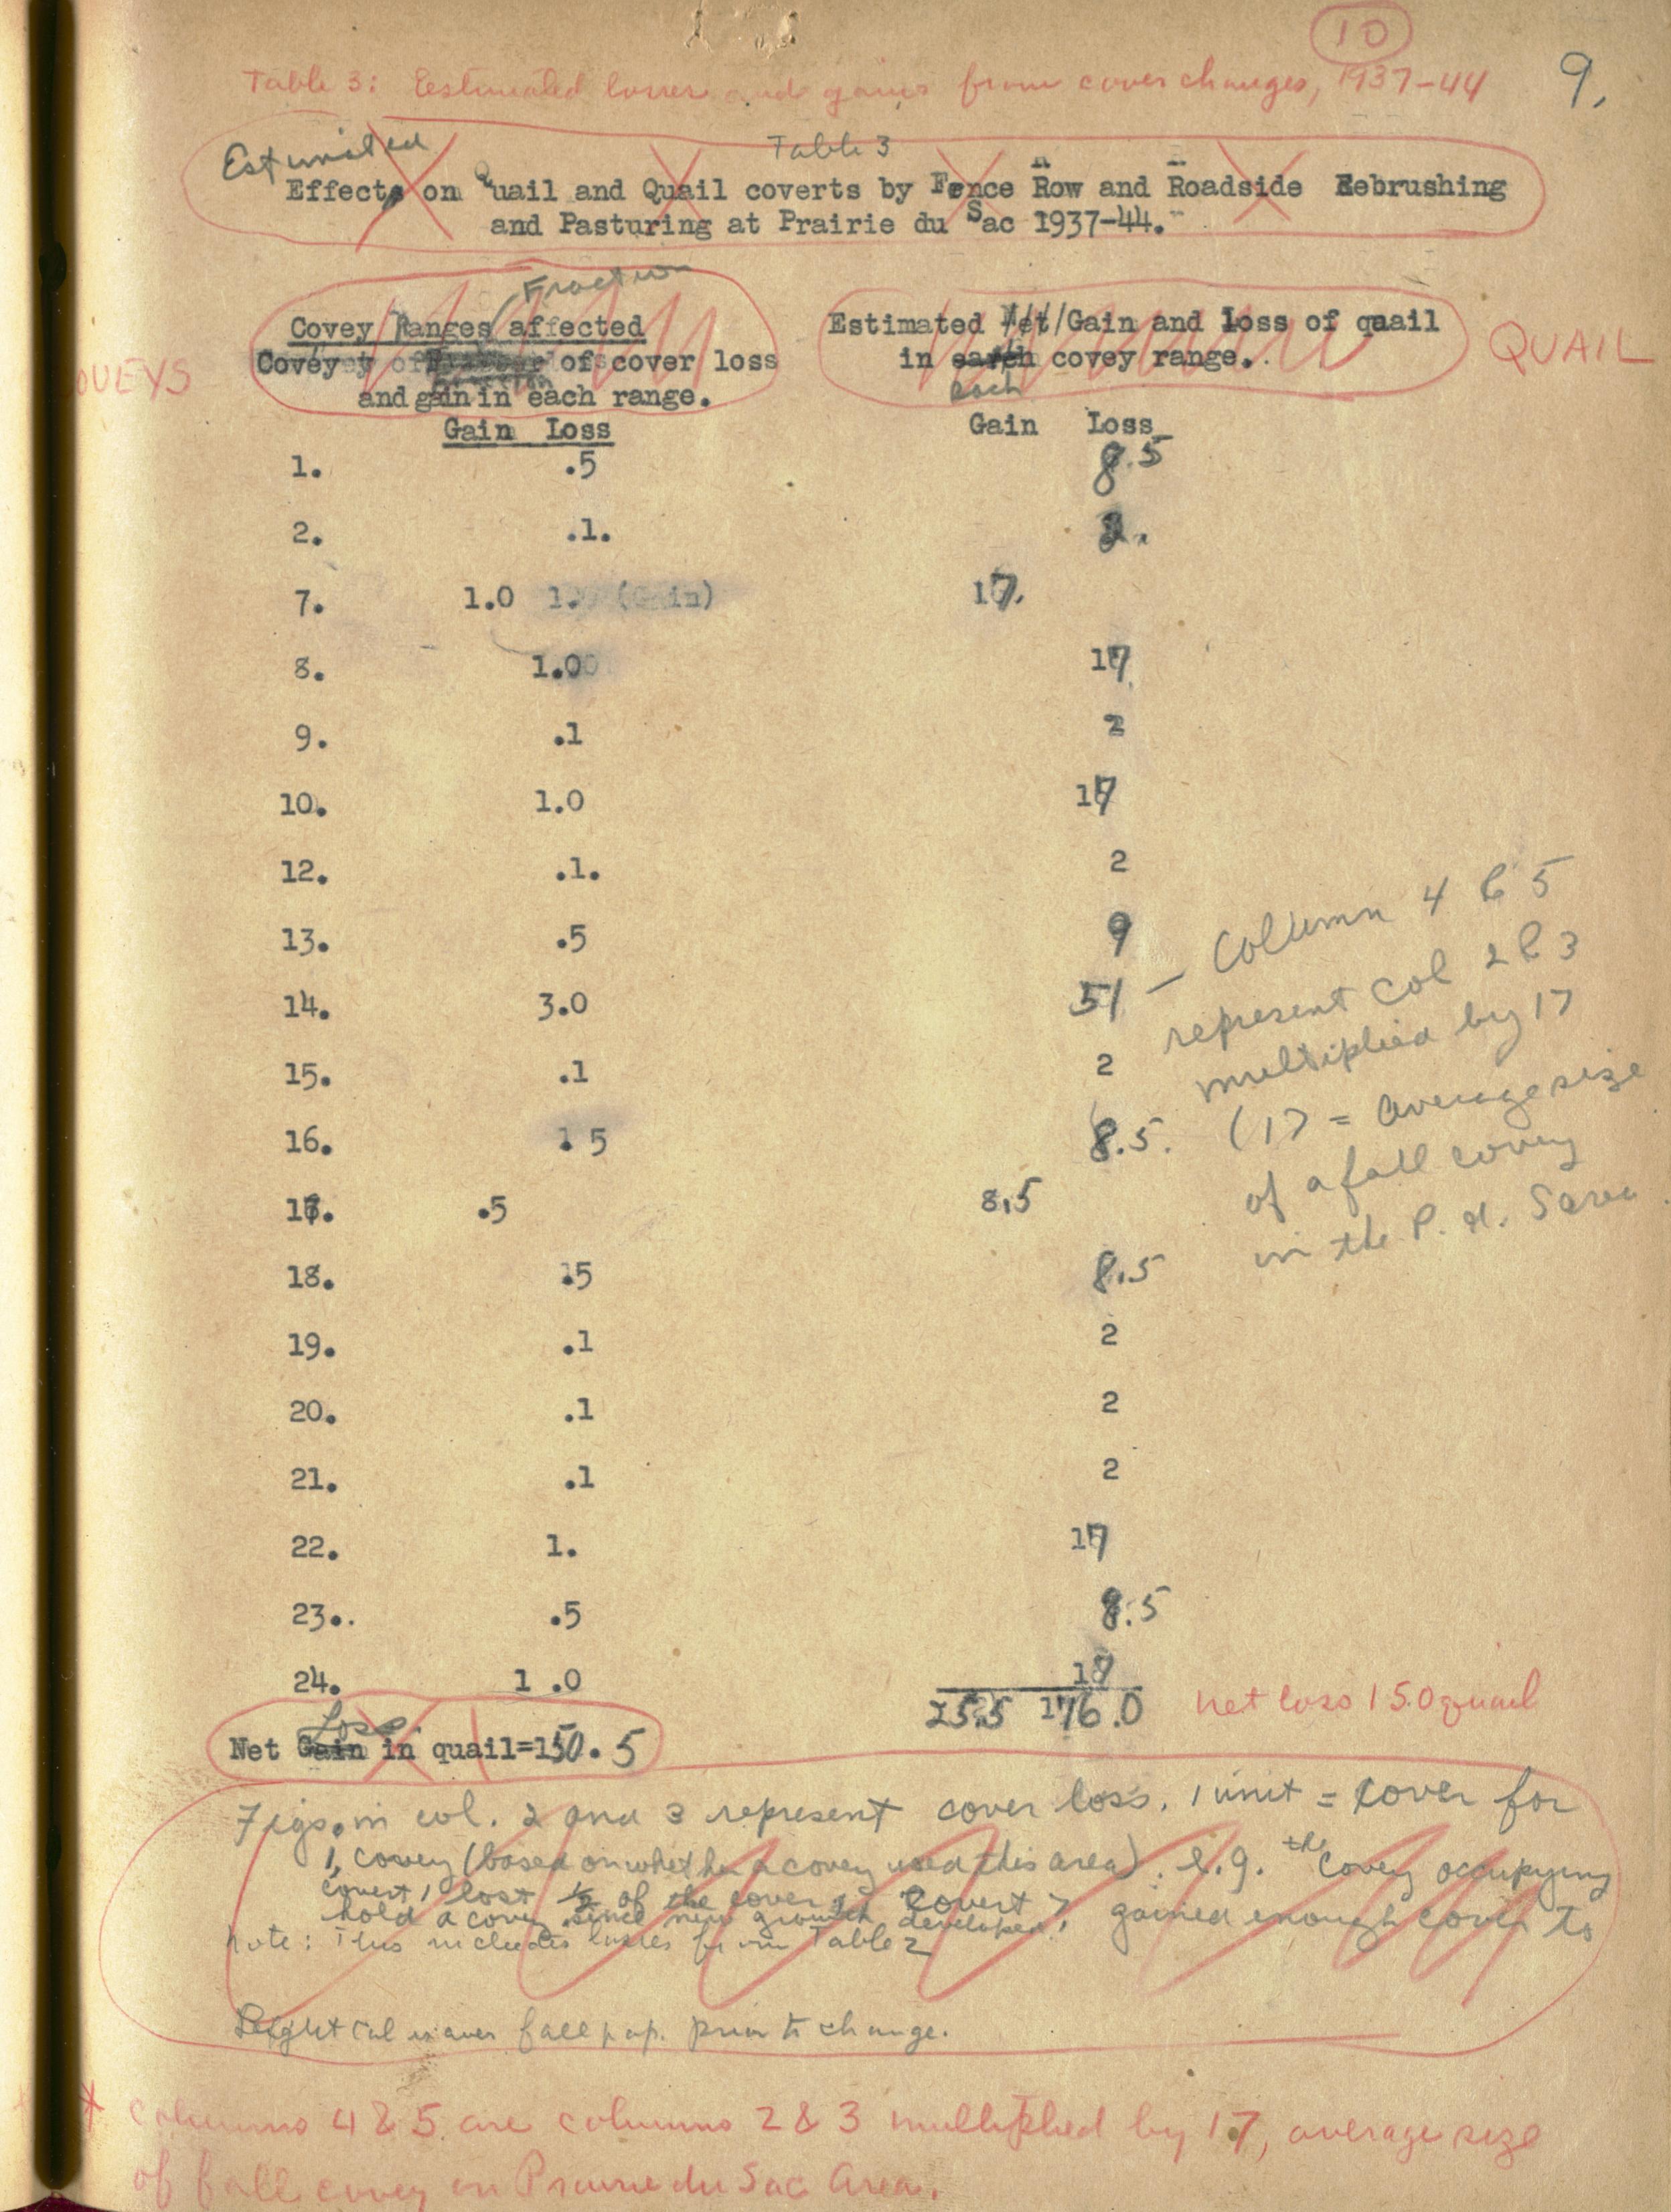 10
Table 3: Eestimated losses and gains from cover changes, 1937-44
9.
Table 3
Estimated
Effects on Quail and Quail coverts by Fence Row and Roadside Debrushing
and Pasturing at Prairie du Sac 1937-44."
Fraction
Covey Ranges affected
Covey of of cover loss
and gain in each range.
Gain Loss
OVEYS
Estimated Net/Gain and loss of quail
in earch covey range.
each
QUAIL
Gain Loss
1. .5 8.5
2. .1. 2.
7. 1.0 1. (Gain) 17.
8. 1.00 17
9. .1 2
10. 1.0 17
12. .1. 2
13. .5 9
14. 3.0 51
15. .1 2
16. .5 8.5.
17. .5 8.5
18. .5 8.5
19. .1 2
20. .1 2
21. .1 2
22. 1. 17
23.. .5 8.5
24. 1 .0 17
25.5 176.0 net loss 150 quail
— Column 4 & 5
represent col 2 & 3
multiplied by 17
(17 = average size
of a fall covey
in the P. d. S area
Loss
Net Gain in quail=150.5
Figs. in col. 2 and 3 represent cover loss. 1 unit = cover for
1 covey (based on whether a covey used this area). e.g. the covey occupying
covert 1 lost ½ of the cover; Covert 7 gained enough cover to
hold a covey since new growth developed.
Note: This includes losses from Table 2
Right col is aver fall pop. prior to change.
* Columns 4 & 5 are columns 2 & 3 multiplied by 17, average size
of fall covey on Prairie du Sac Area.